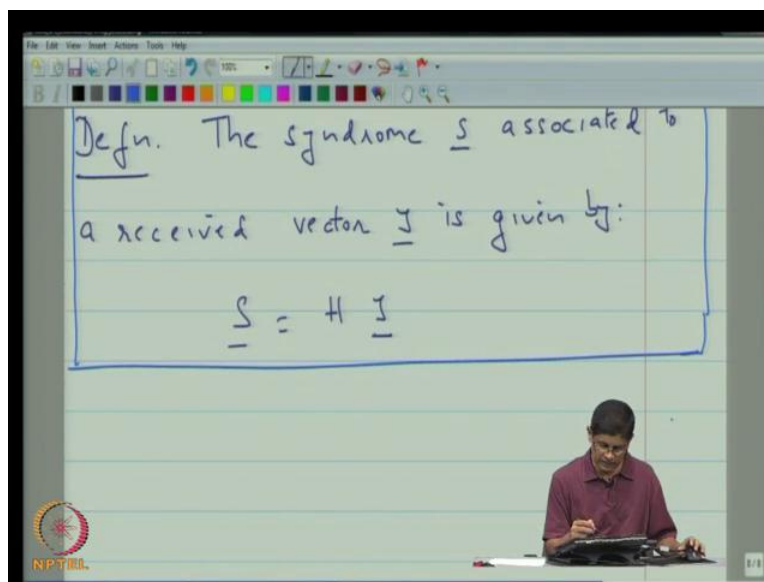 File Edit View Insert Actions Tools Help
100%
B I
Defn. The syndrome s associated to
a received vector y is given by:
s = H y
NPTEL
8/8